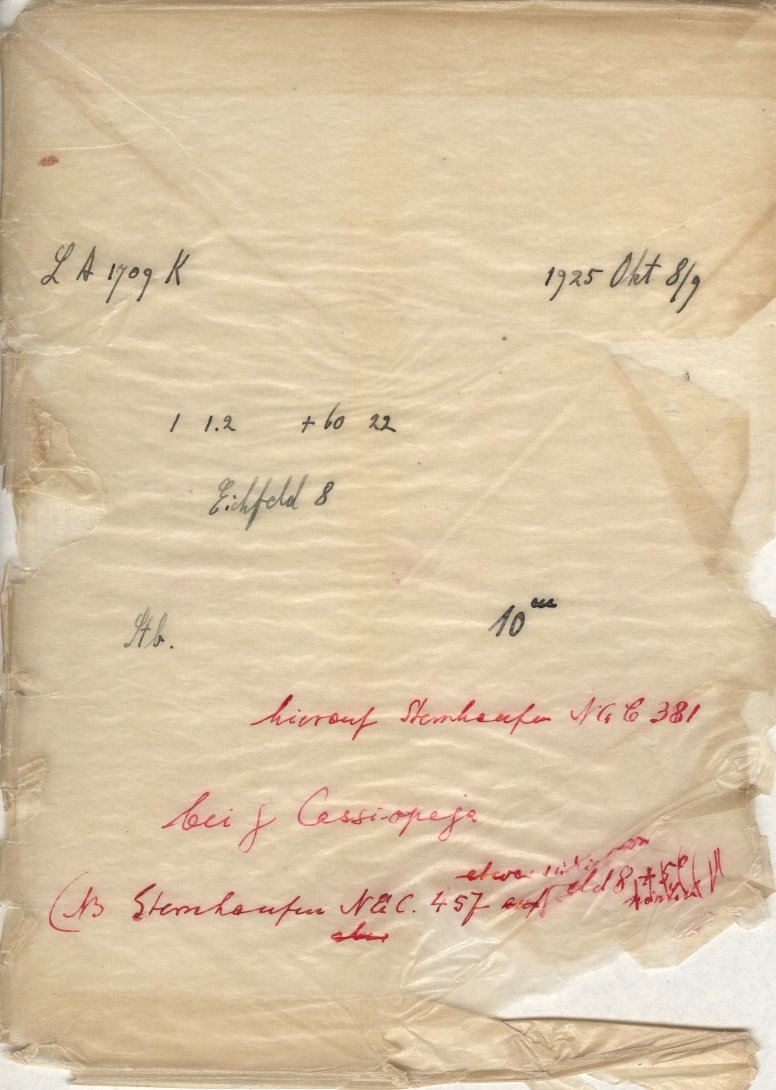 L A 1709 K 1925 Okt 8/9
1 1.2 +60 22
Eichfeld 8
Stb. 10 m
hierauf Sternhaufen NGC 381
bei γ Cassiopeja
etwa
(NB Sternhaufen NGC. 457 auf eld 8 + 5